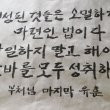 성된것들은 소멸하
마련인 법이다
일하지 말고 해야
바를 모두 성취하
부처님 마지막 유훈